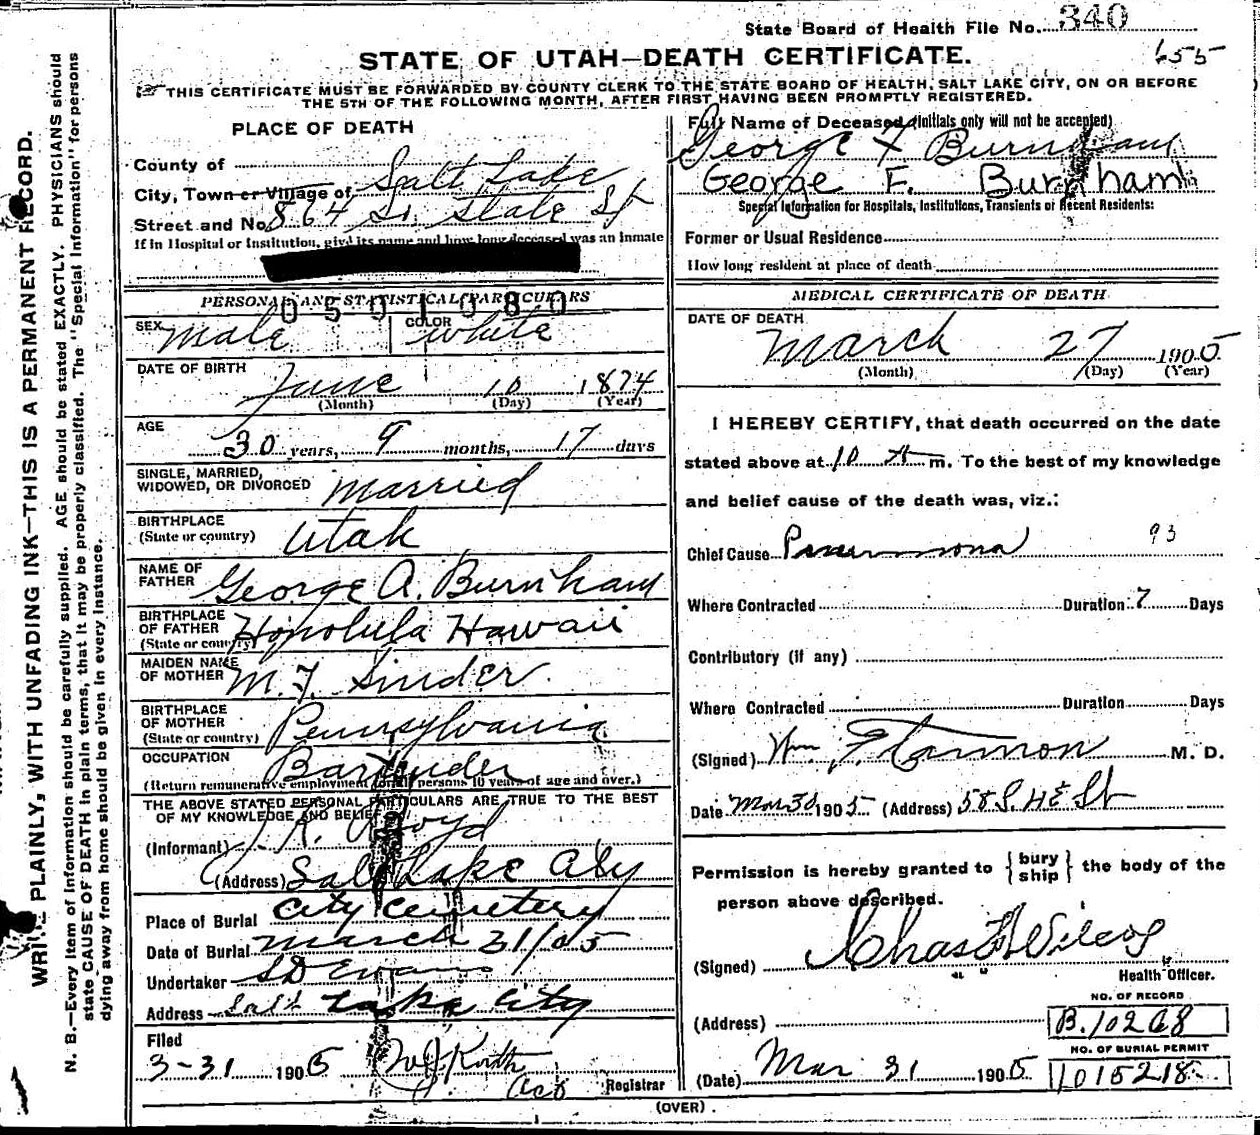 State Board of Health File No. 340
655
STATE OF UTAH—DEATH CERTIFICATE.
THIS CERTIFICATE MUST BE FORWARDED BY COUNTY CLERK TO THE STATE BOARD OF HEALTH, SALT LAKE CITY, ON OR BEFORE
THE 5TH OF THE FOLLOWING MONTH, AFTER FIRST HAVING BEEN PROMPTLY REGISTERED.
WRITE PLAINLY, WITH UNFADING INK—THIS IS A PERMANENT RECORD.
N. B.—Every item of information should be carefully supplied. AGE should be stated EXACTLY. PHYSICIANS should
state CAUSE OF DEATH in plain terms, that it may be properly classified. The "Special Information" for persons
dying away from home should be given in every instance.
PLACE OF DEATH
County of
City, Town or Village of Salt Lake
Street and No. 864 So. State St
If in Hospital or Institution, give its name and how long deceased was an inmate
PERSONAL AND STATISTICAL PARTICULARS
0501080
SEX Male COLOR White
DATE OF BIRTH
June 10 1874
(Month) (Day) (Year)
AGE
30 years, 9 months, 17 days
SINGLE, MARRIED,
WIDOWED, OR DIVORCED Married
BIRTHPLACE
(State or country) Utah
NAME OF
FATHER George A. Burnham
BIRTHPLACE
OF FATHER
(State or country) Honolula Hawaii
MAIDEN NAME
OF MOTHER M. F. Snider
BIRTHPLACE
OF MOTHER
(State or country) Pennsylvania
OCCUPATION Bartender
(Return remunerative employment for all persons 10 years of age and over.)
THE ABOVE STATED PERSONAL PARTICULARS ARE TRUE TO THE BEST
OF MY KNOWLEDGE AND BELIEF
(Informant)
(Address) Salt Lake City
Place of Burial City Cemetery
Date of Burial March 31/05
Undertaker SD Evans
Address Salt Lake City
Filed
3-31 1905
Registrar
Full Name of Deceased (Initials only will not be accepted)
George F Burnham
George F. Burnham
Special Information for Hospitals, Institutions, Transients or Recent Residents:
Former or Usual Residence
How long resident at place of death
MEDICAL CERTIFICATE OF DEATH
DATE OF DEATH
March 27 1905
(Month) (Day) (Year)
I HEREBY CERTIFY, that death occurred on the date
stated above at 10 A m. To the best of my knowledge
and belief cause of the death was, viz.:
Chief Cause 93
Where Contracted Duration 7 Days
Contributory (if any)
Where Contracted Duration Days
(Signed) Wm M. D.
Date Mar 30 1905 (Address) 58
Permission is hereby granted to { bury ship } the body of the
person above described.
(Signed) Chas Wilcox
Health Officer.
NO. OF RECORD
(Address) B. 10268
NO. OF BURIAL PERMIT
(Date) Mar 31 1905 1015218
(OVER)